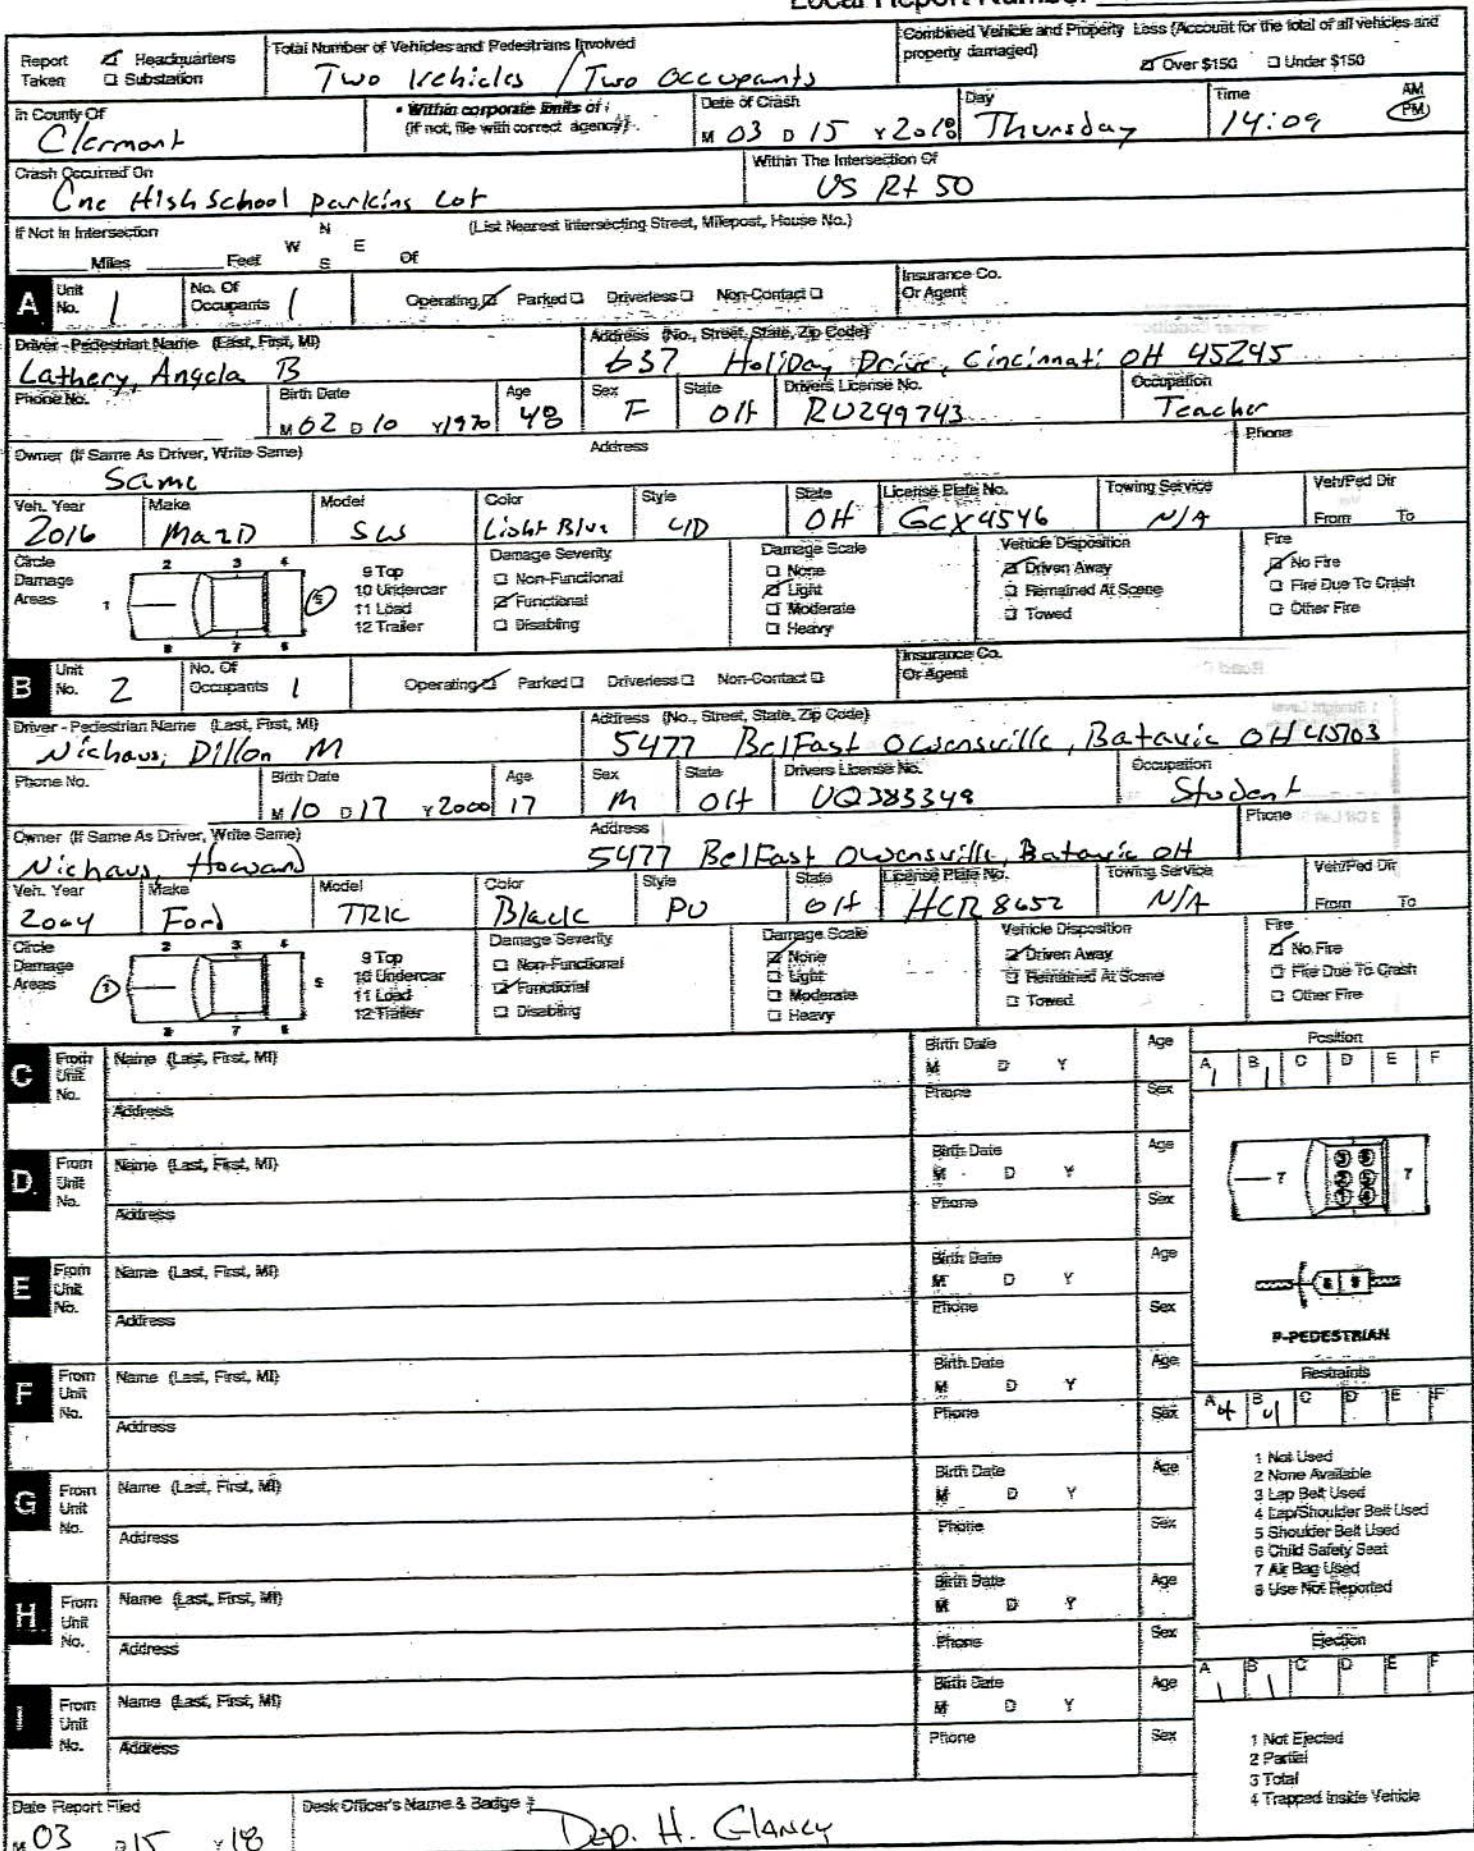 Local Report Number
Report Taken Headquarters Substation
Total Number of Vehicles and Pedestrians Involved
Two Vehicles / Two Occupants
Combined Vehicle and Property Loss (Account for the total of all vehicles and property damaged)
Over $150 Under $150
In County Of
Clermont
• Within corporate limits of:
(if not, file with correct agency).
Date of Crash
M 03 D 15 Y 2018
Day
Thursday
Time
14:09
AM
PM
Crash Occurred On
Cne High School parking Lot
Within The Intersection Of
US Rt 50
If Not in Intersection
(List Nearest Intersecting Street, Milepost, House No.)
Miles Feet N W E S Of
A Unit No. 1
No. Of Occupants 1
Operating Parked Driverless Non-Contact
Insurance Co. Or Agent
Driver - Pedestrian Name (Last, First, MI)
Lathery, Angela B
Address (No., Street, State, Zip Code)
637 Holiday Drive, Cincinnati OH 45245
Phone No.
Birth Date
M 02 D 10 Y 1970
Age
48
Sex
F
State
OH
Drivers License No.
RU249743
Occupation
Teacher
Owner (If Same As Driver, Write Same)
Same
Address
Phone
Veh. Year
2016
Make
MazD
Model
SW
Color
Light Blue
Style
4D
State
OH
License Plate No.
GCX4546
Towing Service
N/A
Veh/Ped Dir
From To
Circle Damage Areas
1 2 3 4 5 6 7 8
9 Top
10 Undercar
11 Load
12 Trailer
Damage Severity
Non-Functional
Functional
Disabling
Damage Scale
None
Light
Moderate
Heavy
Vehicle Disposition
Driven Away
Remained At Scene
Towed
Fire
No Fire
Fire Due To Crash
Other Fire
B Unit No. 2
No. Of Occupants 1
Operating Parked Driverless Non-Contact
Insurance Co. Or Agent
Driver - Pedestrian Name (Last, First, MI)
Niehaus, Dillon M
Address (No., Street, State, Zip Code)
5477 Belfast Owensville, Batavia OH 45103
Phone No.
Birth Date
M 10 D 17 Y 2000
Age
17
Sex
M
State
OH
Drivers License No.
UQ383349
Occupation
Student
Owner (If Same As Driver, Write Same)
Niehaus, Howard
Address
5477 Belfast Owensville, Batavia OH
Phone
Veh. Year
2004
Make
Ford
Model
TRK
Color
Black
Style
PU
State
OH
License Plate No.
HCR8652
Towing Service
N/A
Veh/Ped Dir
From To
Circle Damage Areas
1 2 3 4 5 6 7 8
9 Top
10 Undercar
11 Load
12 Trailer
Damage Severity
Non-Functional
Functional
Disabling
Damage Scale
None
Light
Moderate
Heavy
Vehicle Disposition
Driven Away
Remained At Scene
Towed
Fire
No Fire
Fire Due To Crash
Other Fire
C From Unit No.
Name (Last, First, MI)
Address
Birth Date
M D Y
Phone
Age
Sex
D From Unit No.
Name (Last, First, MI)
Address
Birth Date
M D Y
Phone
Age
Sex
E From Unit No.
Name (Last, First, MI)
Address
Birth Date
M D Y
Phone
Age
Sex
F From Unit No.
Name (Last, First, MI)
Address
Birth Date
M D Y
Phone
Age
Sex
G From Unit No.
Name (Last, First, MI)
Address
Birth Date
M D Y
Phone
Age
Sex
H From Unit No.
Name (Last, First, MI)
Address
Birth Date
M D Y
Phone
Age
Sex
I From Unit No.
Name (Last, First, MI)
Address
Birth Date
M D Y
Phone
Age
Sex
Position
A 1 B 1 C D E F
7 3 6 2 5 1 4 7
8 9
P-PEDESTRIAN
Restraints
A 4 B 4 C D E F
1 Not Used
2 None Available
3 Lap Belt Used
4 Lap/Shoulder Belt Used
5 Shoulder Belt Used
6 Child Safety Seat
7 Air Bag Used
8 Use Not Reported
Ejection
A 1 B 1 C D E F
1 Not Ejected
2 Partial
3 Total
4 Trapped Inside Vehicle
Date Report Filed
M 03 D 15 Y 18
Desk Officer's Name & Badge #
Dep. H. Glancy